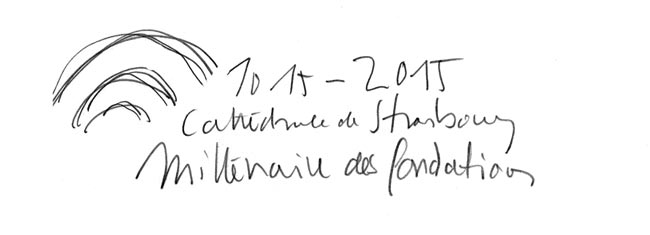 1015-2015
Cathédrale de Strasbourg
Millénaire des fondations